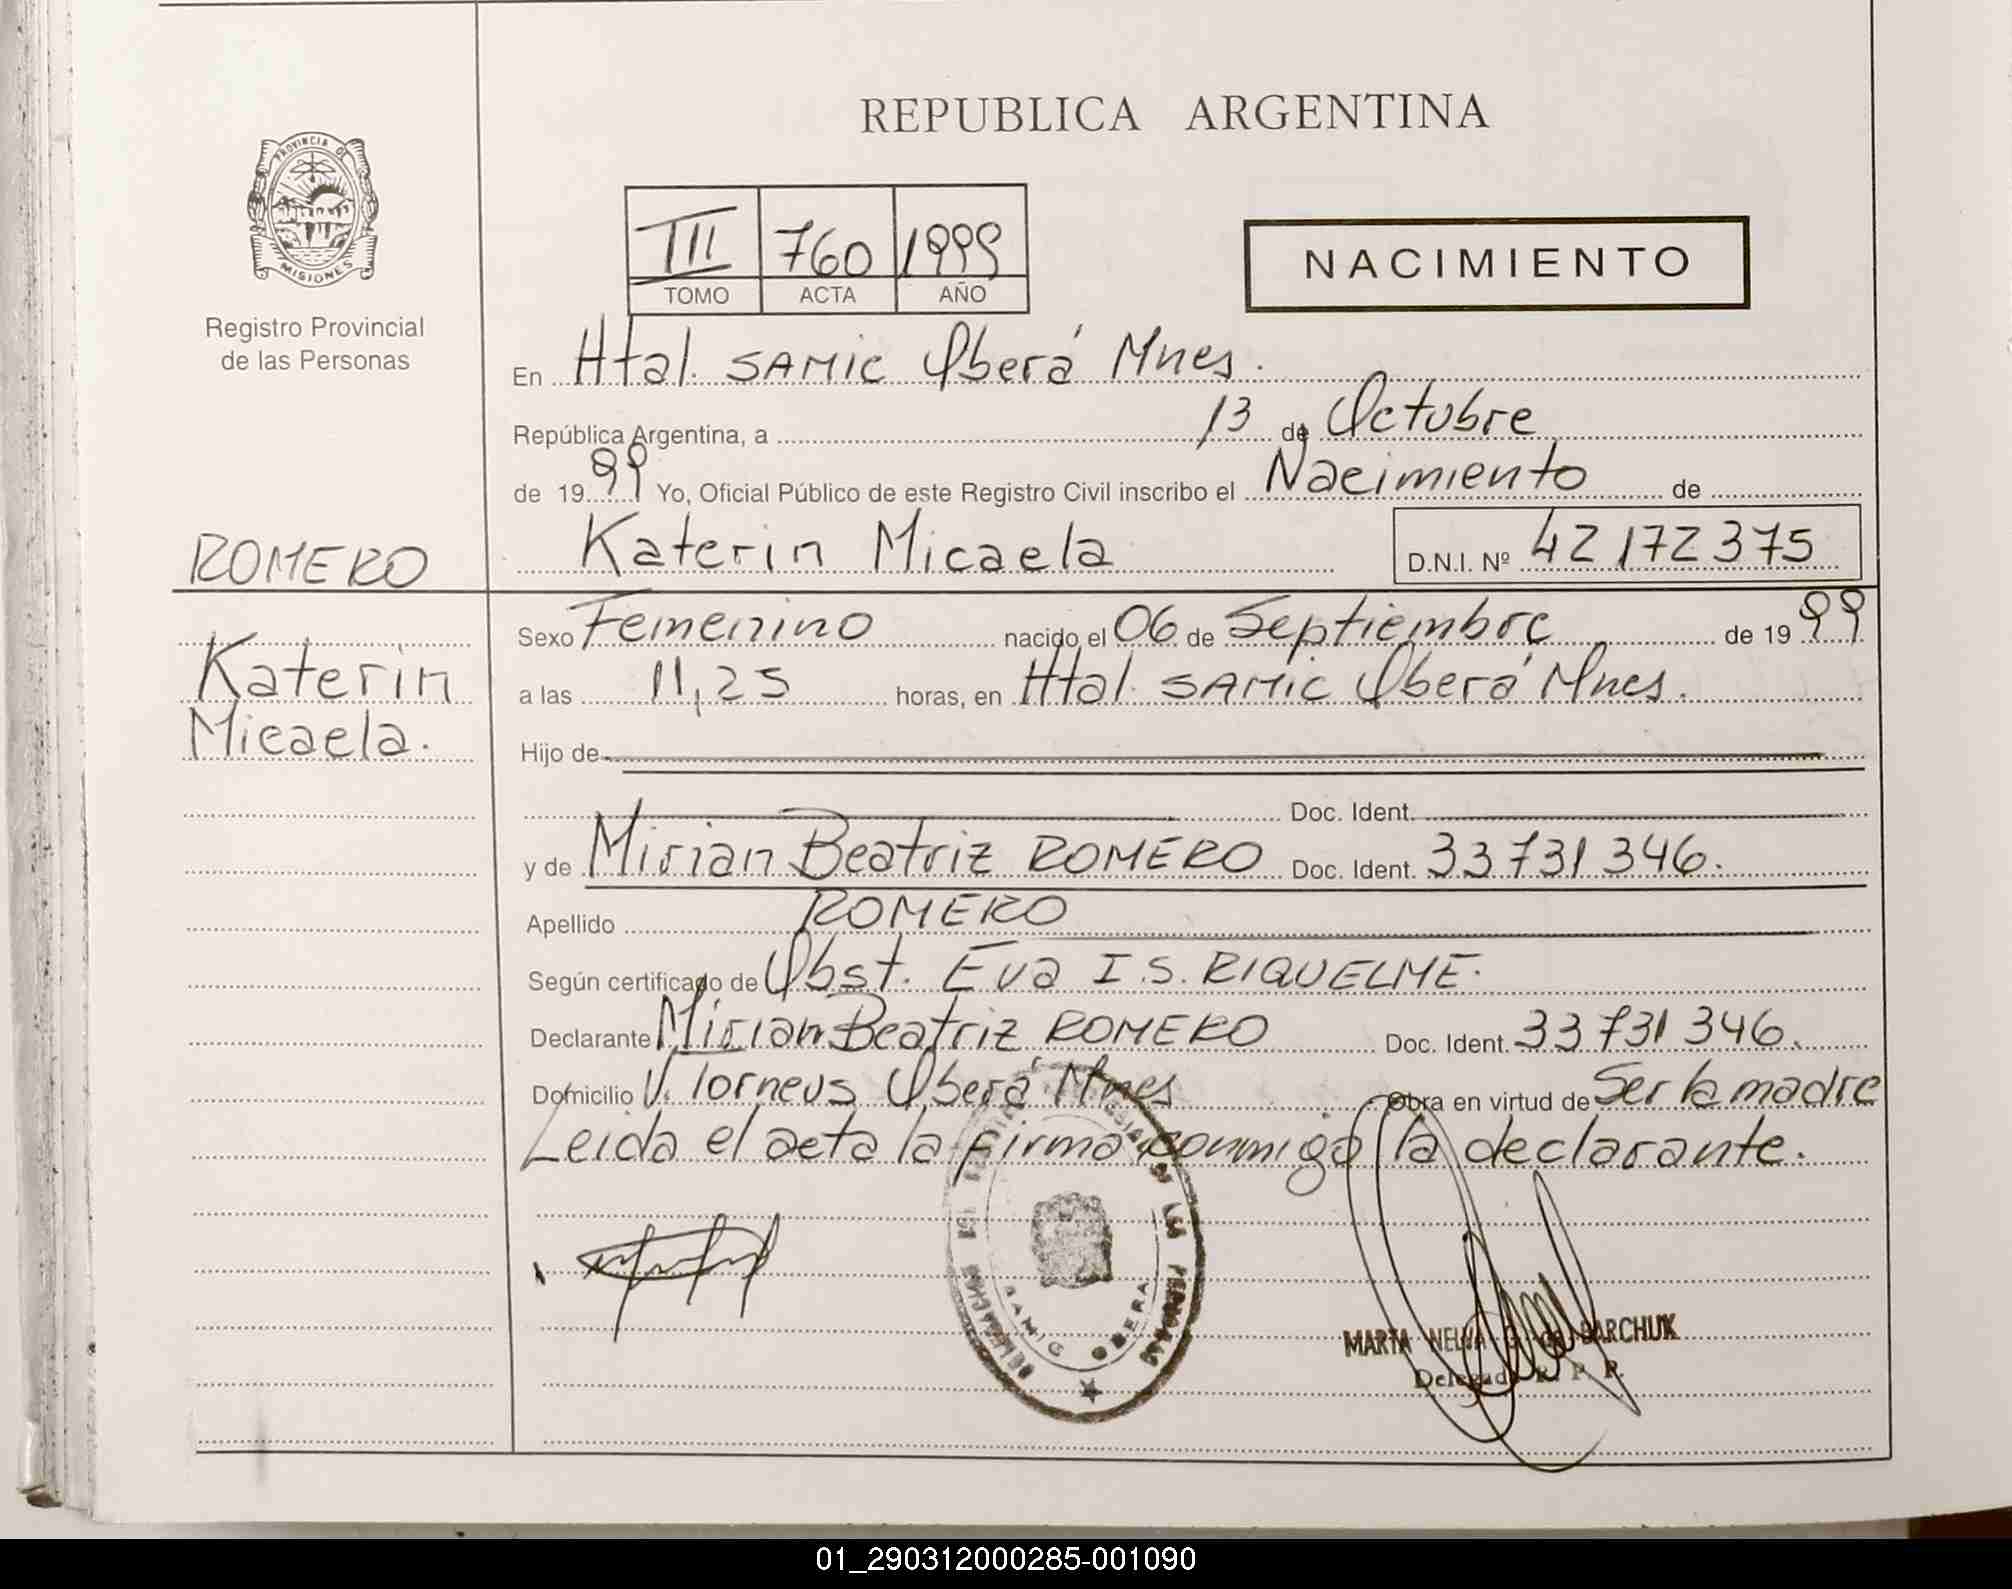 REPUBLICA ARGENTINA
PROVINCIA DE
MISIONES
Registro Provincial
de las Personas
III 760 1999
TOMO ACTA AÑO
NACIMIENTO
En Htal. SAMIC Oberá Mnes.
República Argentina, a 13 de Octubre
de 1999 Yo, Oficial Público de este Registro Civil inscribo el Nacimiento de
Katerin Micaela D.N.I. Nº 42172375
ROMERO
Katerin
Micaela.
Sexo Femenino nacido el 06 de Septiembre de 1999
a las 11,25 horas, en Htal. SAMIC Oberá Mnes.
Hijo de
Doc. Ident.
y de Mirian Beatriz ROMERO Doc. Ident. 33731346.
Apellido ROMERO
Según certificado de Obst. Eva I.S. RIQUELME.
Declarante Mirian Beatriz ROMERO Doc. Ident. 33731346.
Domicilio V. Torneus Oberá Mnes Obra en virtud de Ser la madre
Leida el acta la firma conmigo la declarante.
DE LAS PERSONAS
SAMIC OBERA
MARTA NELVA BARCHUK
Delegada R. P. P.
01_290312000285-001090